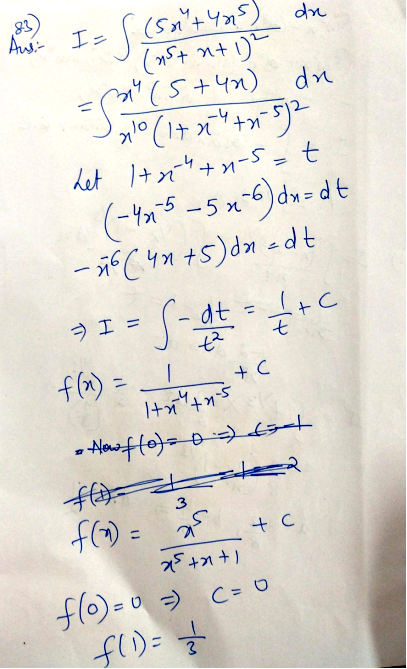 83)
Ans:- I = ∫ (5x⁴+4x⁵) / (x⁵+x+1)² dx
= ∫ x⁴(5+4x) / x¹⁰(1+x⁻⁴+x⁻⁵)² dx
Let 1+x⁻⁴+x⁻⁵ = t
(-4x⁻⁵ -5x⁻⁶)dx = dt
-x⁻⁶(4x+5)dx = dt
⇒ I = ∫ - dt/t² = 1/t + C
f(x) = 1 / (1+x⁻⁴+x⁻⁵) + C
Now f(0) = 0 ⇒ C = -1
f(1) = 1/3
f(x) = x⁵ / (x⁵+x+1) + C
f(0) = 0 ⇒ C = 0
f(1) = 1/3